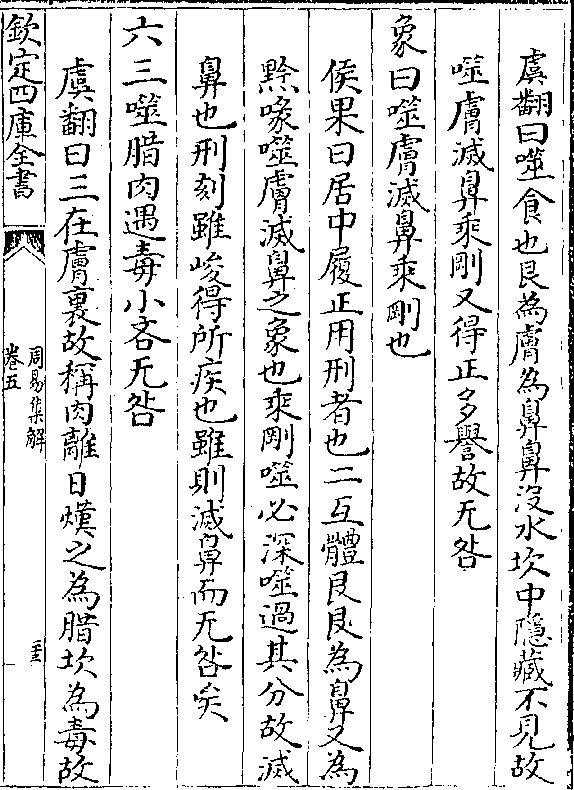 虞翻曰噬食也艮為膚為鼻鼻沒水坎中隱藏不見故
噬膚滅鼻乘剛又得正多譽故无咎
象曰噬膚滅鼻乘剛也
侯果曰居中履正用刑者也二互體艮艮為鼻又為
黔喙噬膚滅鼻之象也乘剛噬必深噬過其分故滅
鼻也刑刻雖峻得所疾也雖則滅鼻而无咎矣
六三噬腊肉遇毒小吝无咎
虞翻曰三在膚裏故稱肉離日熯之為腊坎為毒故
欽定四庫全書
周易集解
卷五